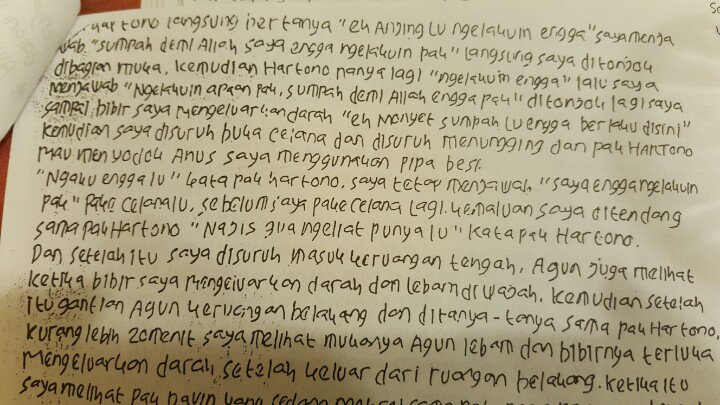 Hartono langsung bertanya "eh Anjing lu ngelakuin engga" saya menja
wab. "sumpah demi Allah saya engga ngelakuin pak" langsung saya ditonjok
dibagian muka. kemudian Hartono nanya lagi "ngelakuin engga" lalu saya
Menjawab "Ngelakuin apaan pak, sumpah demi Allah engga pak" ditonjok lagi saya
sampai bibir saya mengeluarkan darah "eh Monyet sumpah lu engga berlaku disini"
kemudian saya disuruh buka celana dan disuruh menungging dan pak HARTONO
mau menyodok Anus saya menggunakan pipa besi.
"Ngaku engga lu" kata pak hartono. saya tetap menjawab "saya engga ngelakuin
pak" pake celana lu, sebelum saya pake celana lagi. kemaluan saya ditendang
sama pak Hartono "Najis gua ngeliat punya lu" kata pak Hartono.
Dan setelah itu saya disuruh masuk keruangan tengah, Agun juga melihat
ketika bibir saya mengeluarkan darah dan lebam di wajah. kemudian setelah
itu gantian Agun keruangan belakang dan ditanya-tanya sama pak Hartono,
kurang lebih 20menit saya melihat mukanya Agun lebam dan bibirnya terluka
Mengeluarkan darah setelah keluar dari ruangan belakang. ketika itu
saya melihat pak yang sedang